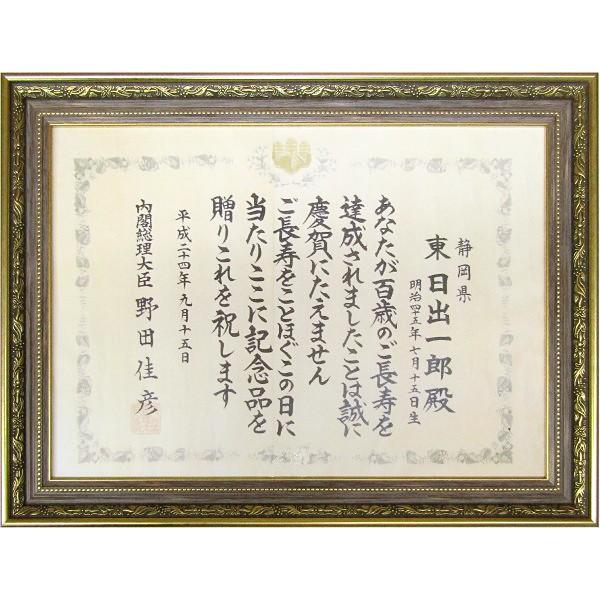 静岡県
東日出一郎殿
明治四十五年七月十五日生
あなたが百歳のご長寿を
達成されましたことは誠に
慶賀にたえません
ご長寿をことほぐこの日に
当たりここに記念品を
贈りこれを祝します
平成二十四年九月十五日
内閣総理大臣 野田佳彦